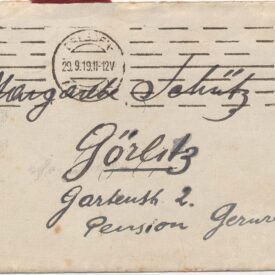 29.9.19.11-12V
Margarete Schütz
Görlitz
Gartenstr. 2.
Pension